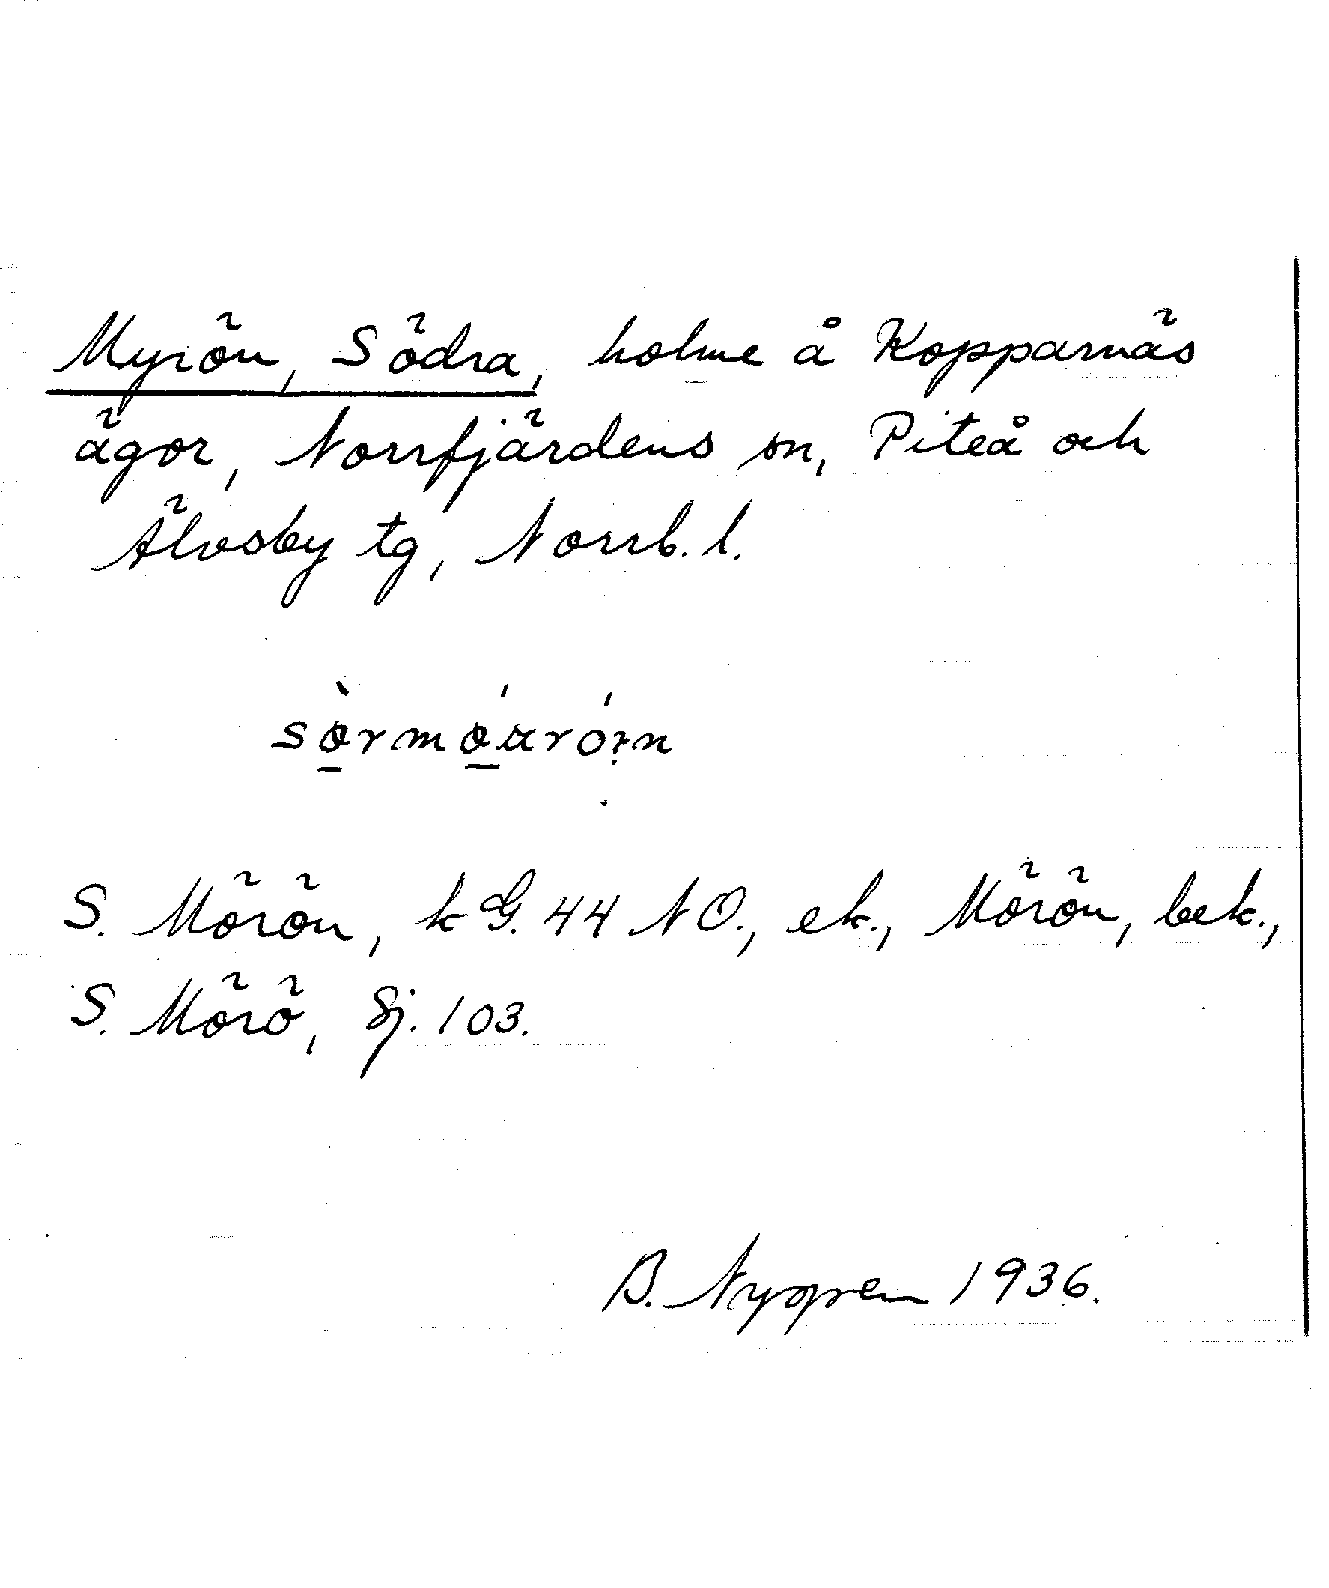 Myrön, Södra, holme å Kopparnäs
ägor, Norrfjärdens sn, Piteå och
Älvsby tg, Norrb. l.
S. Mörön, kG. 44 NO., ek., Mörön, bek.,
S. Mörö, Sj. 103.
B. Nygren 1936.